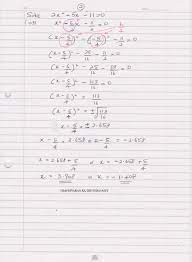 ②
Solve 2x² - 5x - 11 = 0
(÷2) x² - 5x/2 - 11/2 = 0
(x - 5/4)² - (-5/4)² - 11/2 = 0
(x - 5/4)² - 25/16 - 11/2 = 0
(x - 5/4)² - 25/16 - 88/16 = 0
(x - 5/4)² - 113/16 = 0
(x - 5/4)² = 113/16
x - 5/4 = ± √113/16
x - 5/4 = ± 2.658
x - 5/4 = 2.658 or x - 5/4 = -2.658
x = 2.658 + 5/4 or x = -2.658 + 5/4
x = 3.908 or x = -1.408